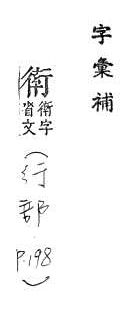 字彙補
衛字
省文
(行部 P.198)